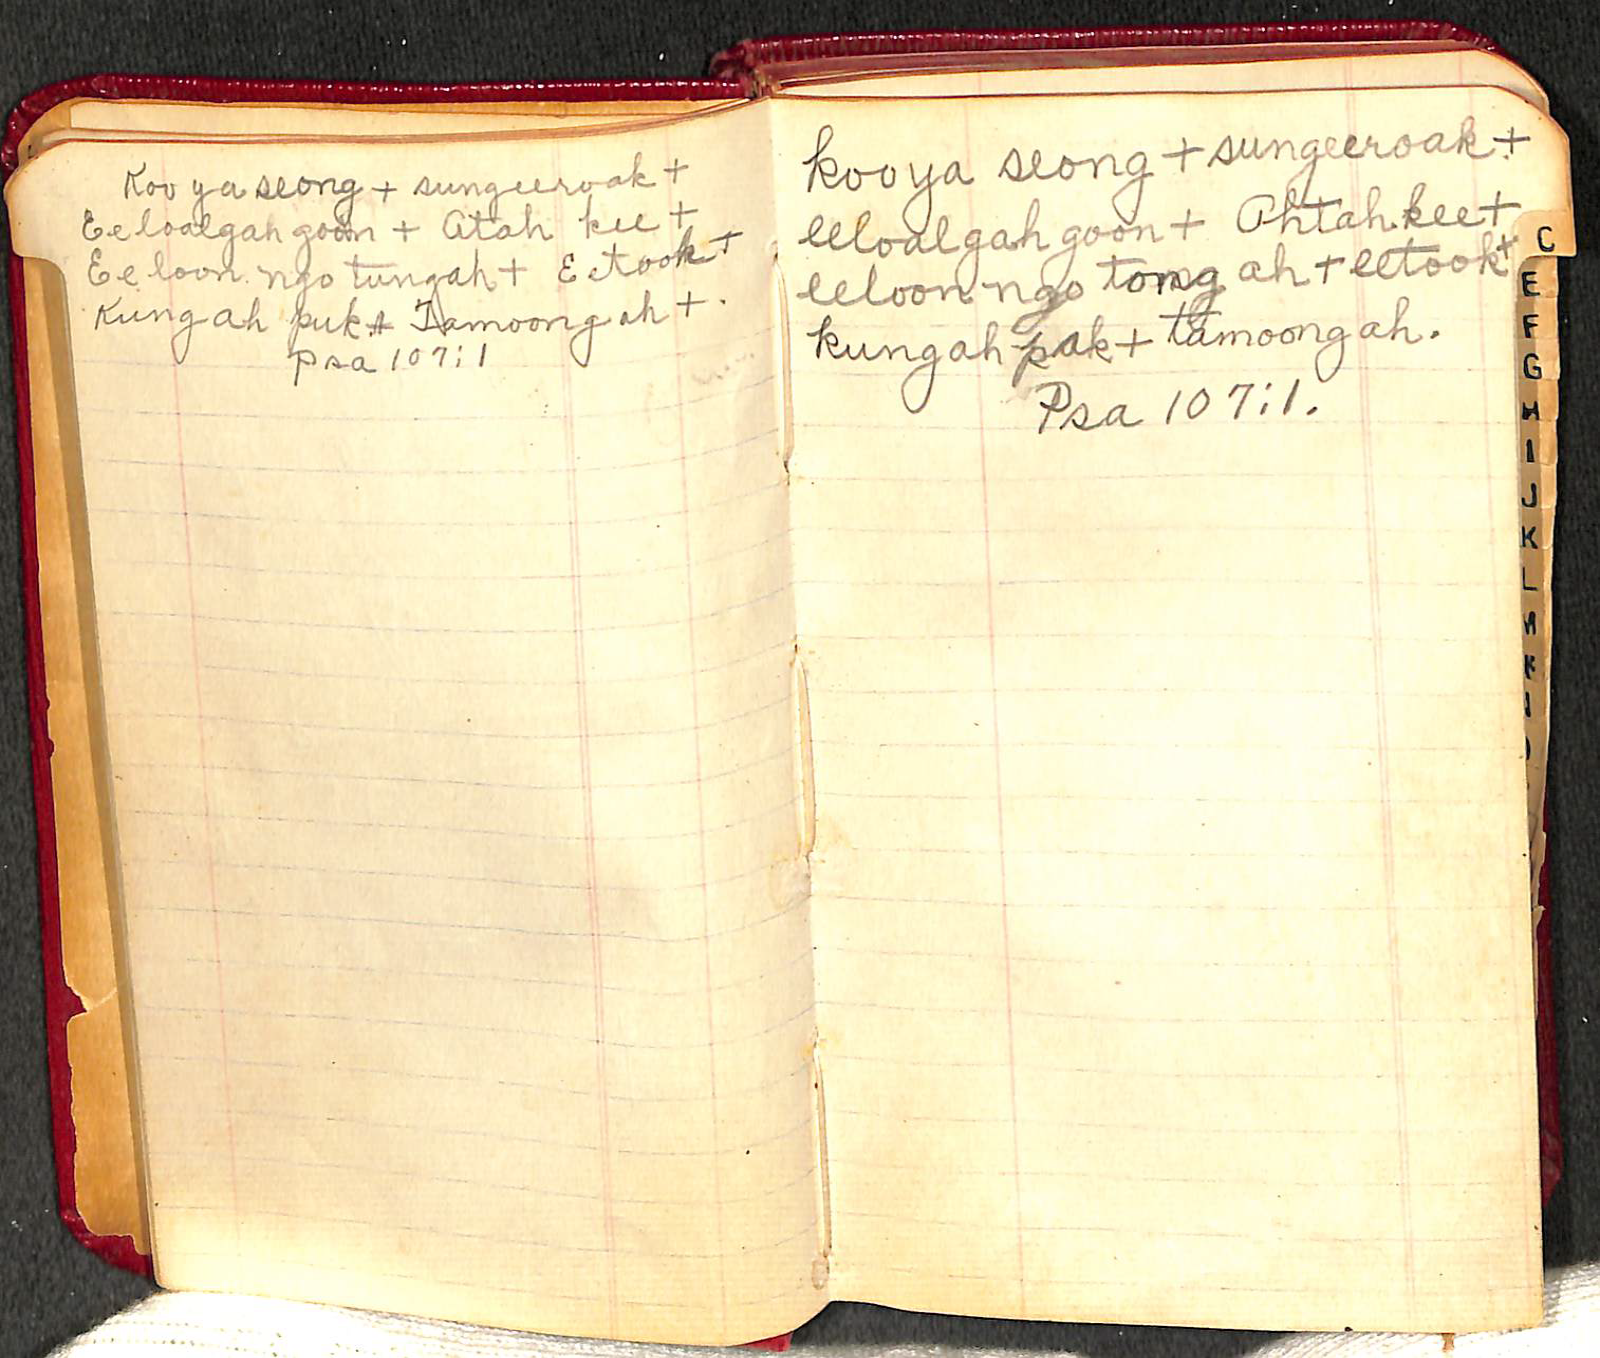 Koo ya seong + sungeeroak +
Eeloalgah goon + Atah kee +
Ee loon ngo tungah + Eetook +
Kungah puk + Tamoongah +.
Psa 107:1
kooya seong + sungeeroak +
eeloalgah goon + Ahtah kee +
eeloon ngo tong ah + eetook +
kungah pak + tamoongah.
Psa 107:1.
C
E
F
G
H
I
J
K
L
M